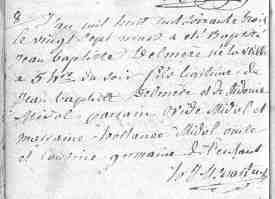 8 L'an mil huit cent soixante trois
le vingt sept mars a été Baptisé
Jean Baptiste Delmère né la veille
à 5 hrs du soir fils légitime de
Jean Baptiste Delmère et de
Midol parrain Ovide Midol et
marraine Midol oncle
et cousine germaine de l'enfant